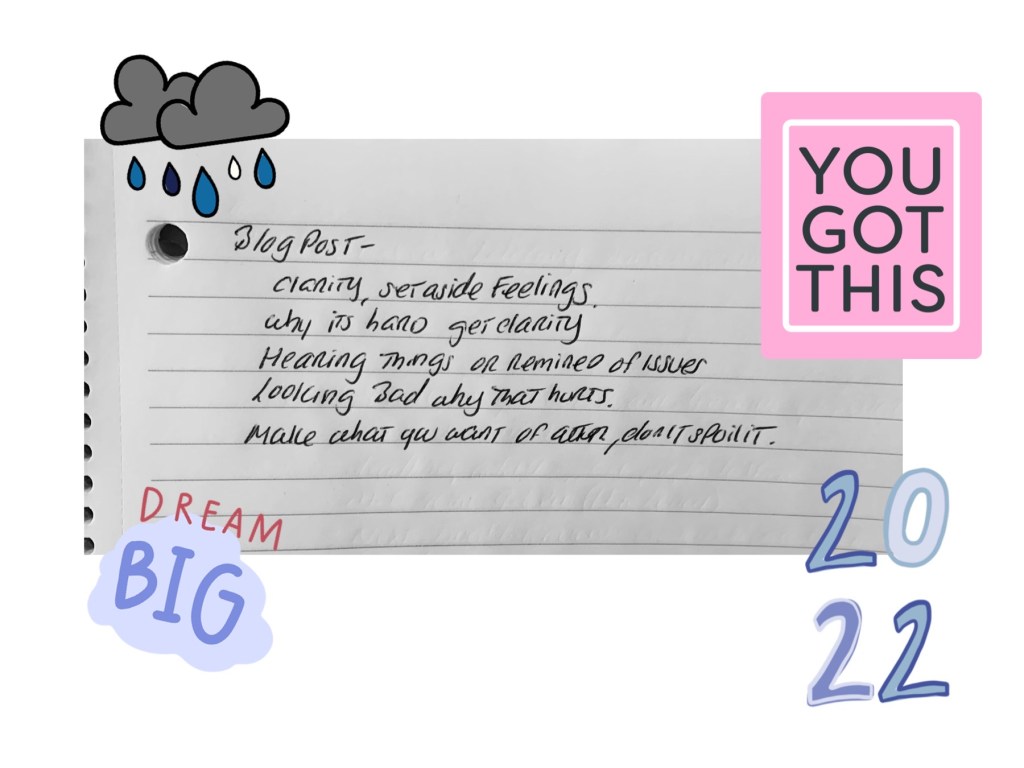 YOU
GOT
THIS
Blog Post -
clarity, set aside Feelings.
why its hard get clarity
Hearing Things or remined of Issues
Looking Bad why That hurts.
Make what you want of , don't spoil it.
DREAM
BIG
20
22